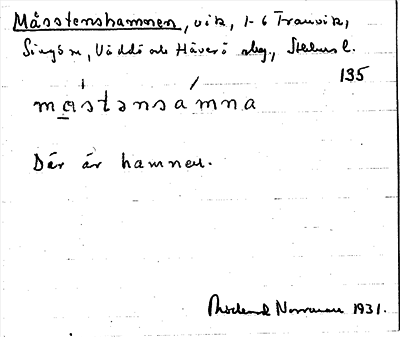 Måsstenshammen, vik, 1-6 Tranvik,
Singö sn, Väddö och Häverö skg., Sthlms l.
135
måstənsámna
Där är hamnen.
Norrman 1931.